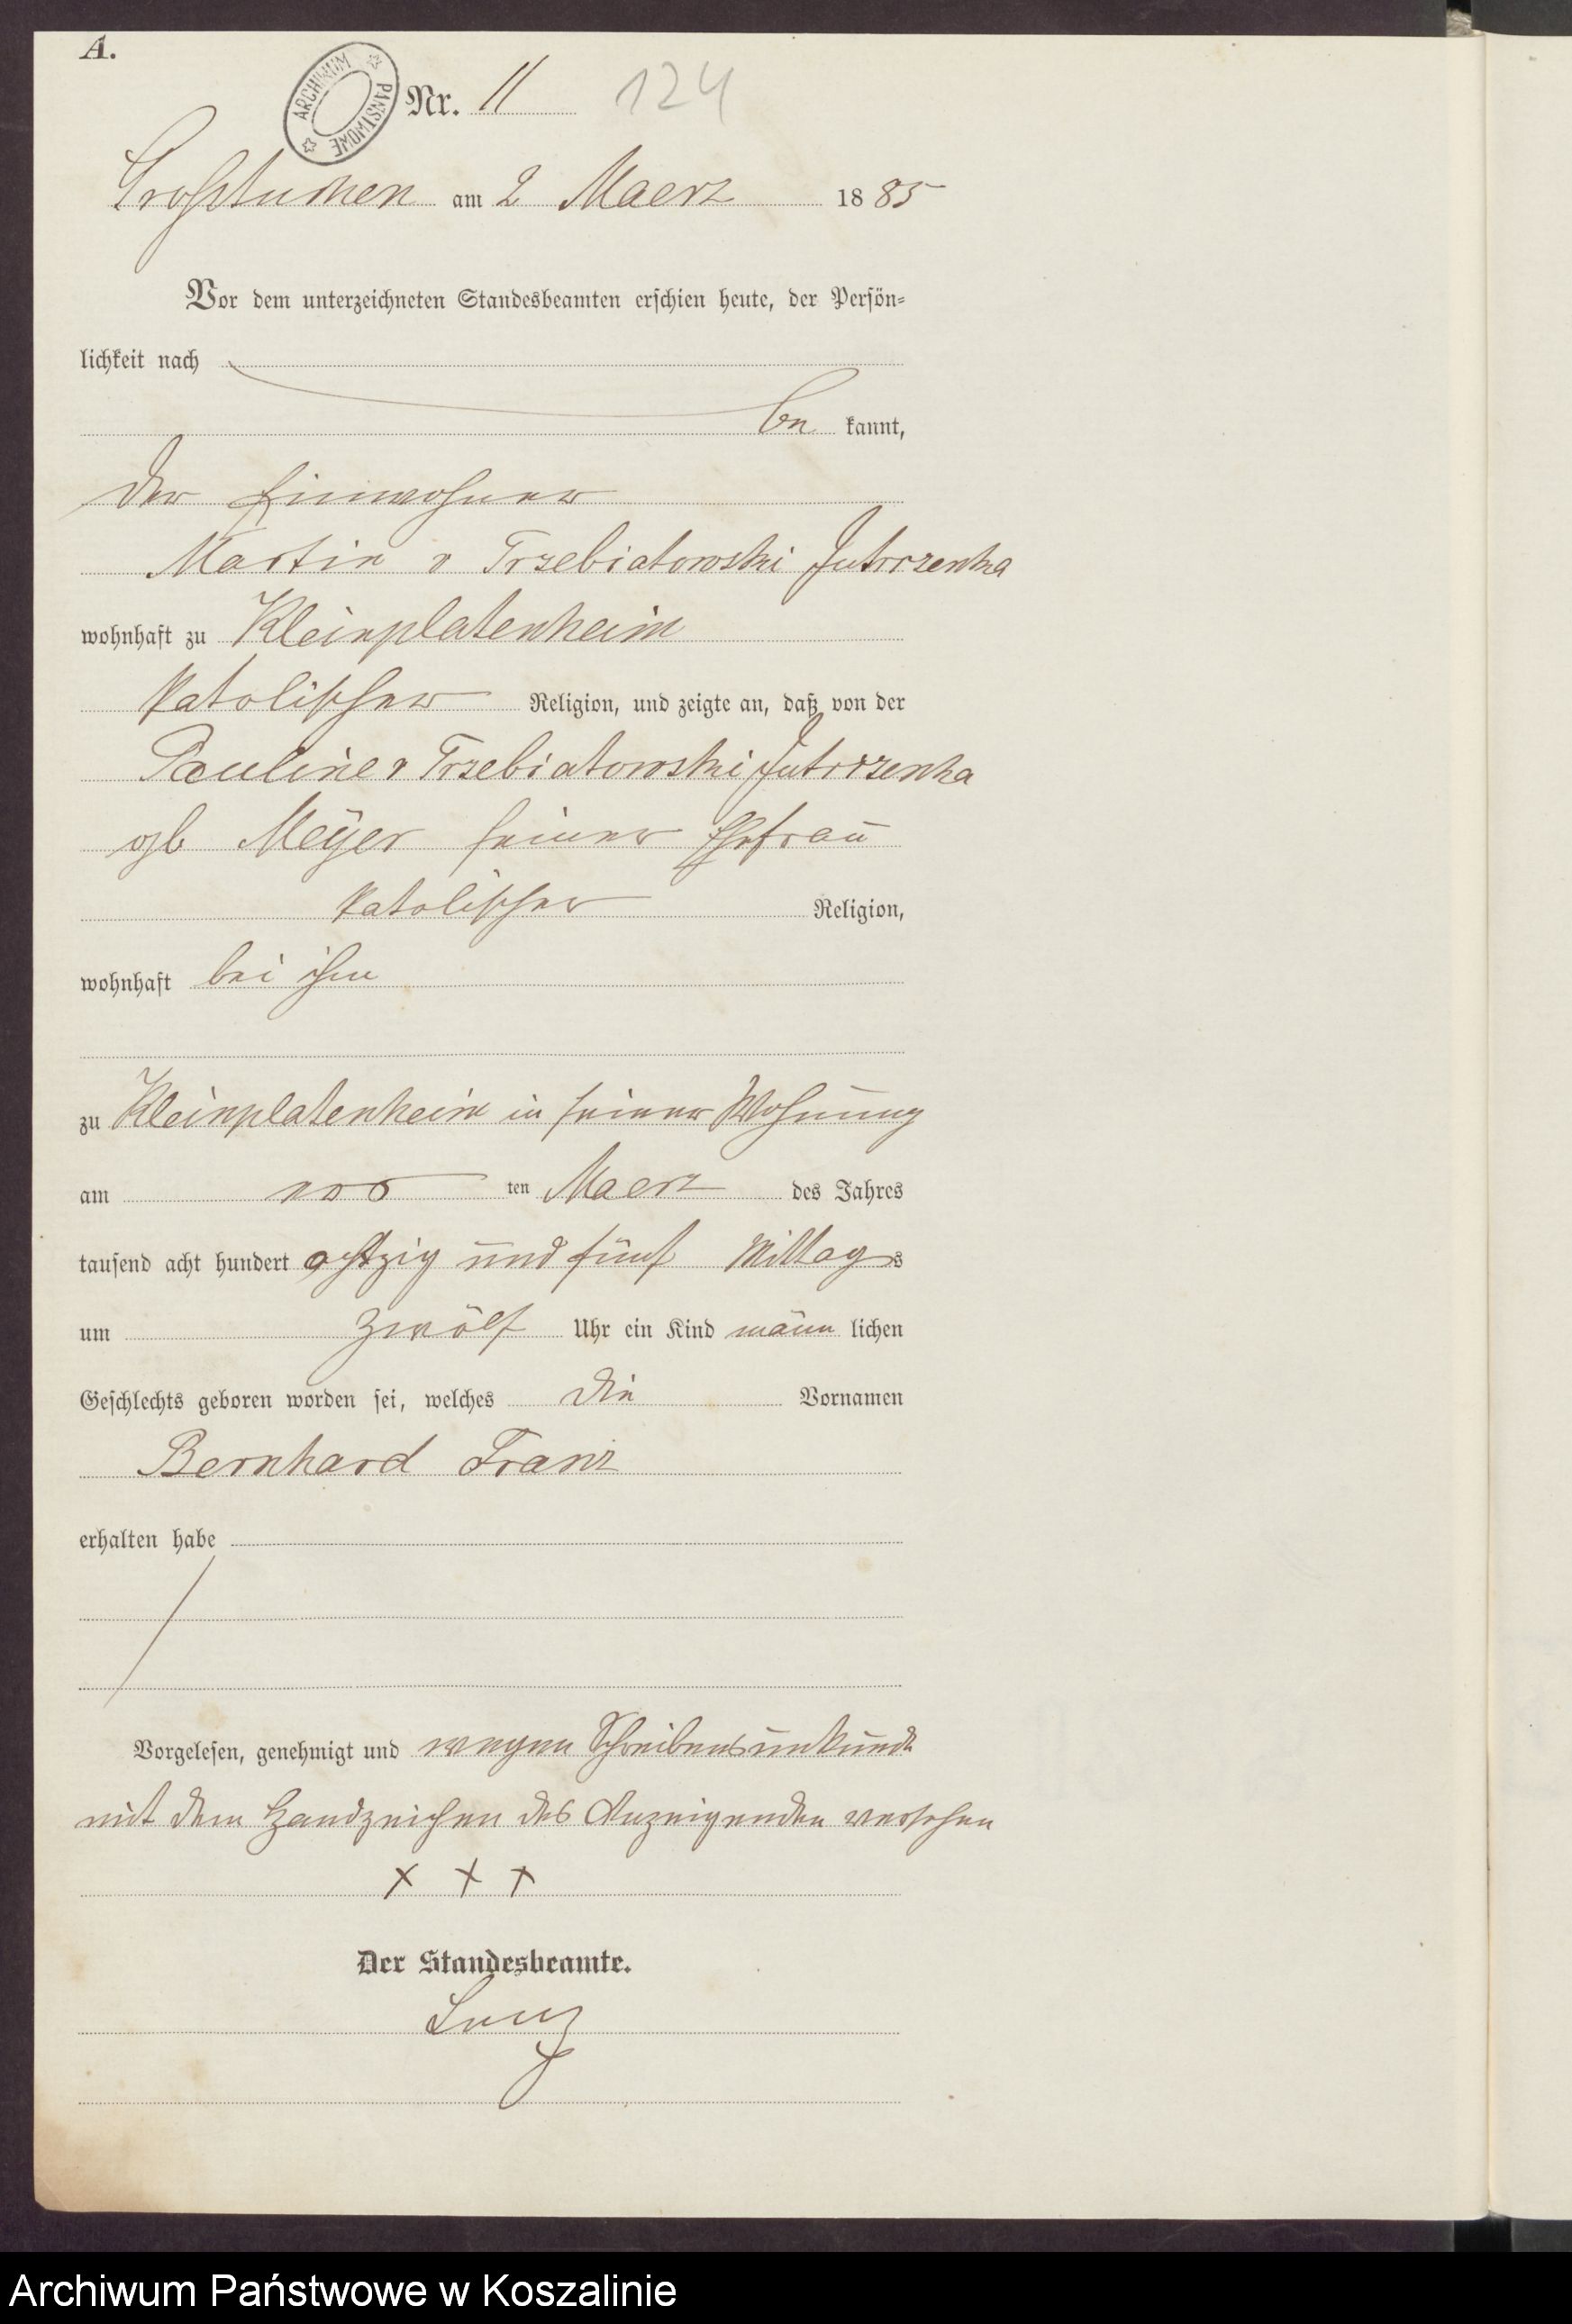 A.
ARCHIWUM PAŃSTWOWE
Nr. 11 124
Großtuchen am 2 Maerz 1885
Vor dem unterzeichneten Standesbeamten erschien heute, der Persön-
lichkeit nach
be kannt,
der Einwohner
Martin v Trzebiatowski Jutrzenka
wohnhaft zu Kleinplatenheim
katolischer Religion, und zeigte an, daß von der
Pauline v Trzebiatowski Jutrzenka
gb Meÿer seiner Ehefrau
katolischer Religion,
wohnhaft bei ihm
zu Kleinplatenheim in seiner Wohnung
am ten Maerz des Jahres
tausend acht hundert achtzig und fünf Mittags
um zwölf Uhr ein Kind männ lichen
Geschlechts geboren worden sei, welches die Vornamen
Bernhard Franz
erhalten habe
Vorgelesen, genehmigt und wegen Schreibensunkunde
mit dem Handzeichen des Anzeigenden versehen
x x x
Der Standesbeamte.
Archiwum Państwowe w Koszalinie